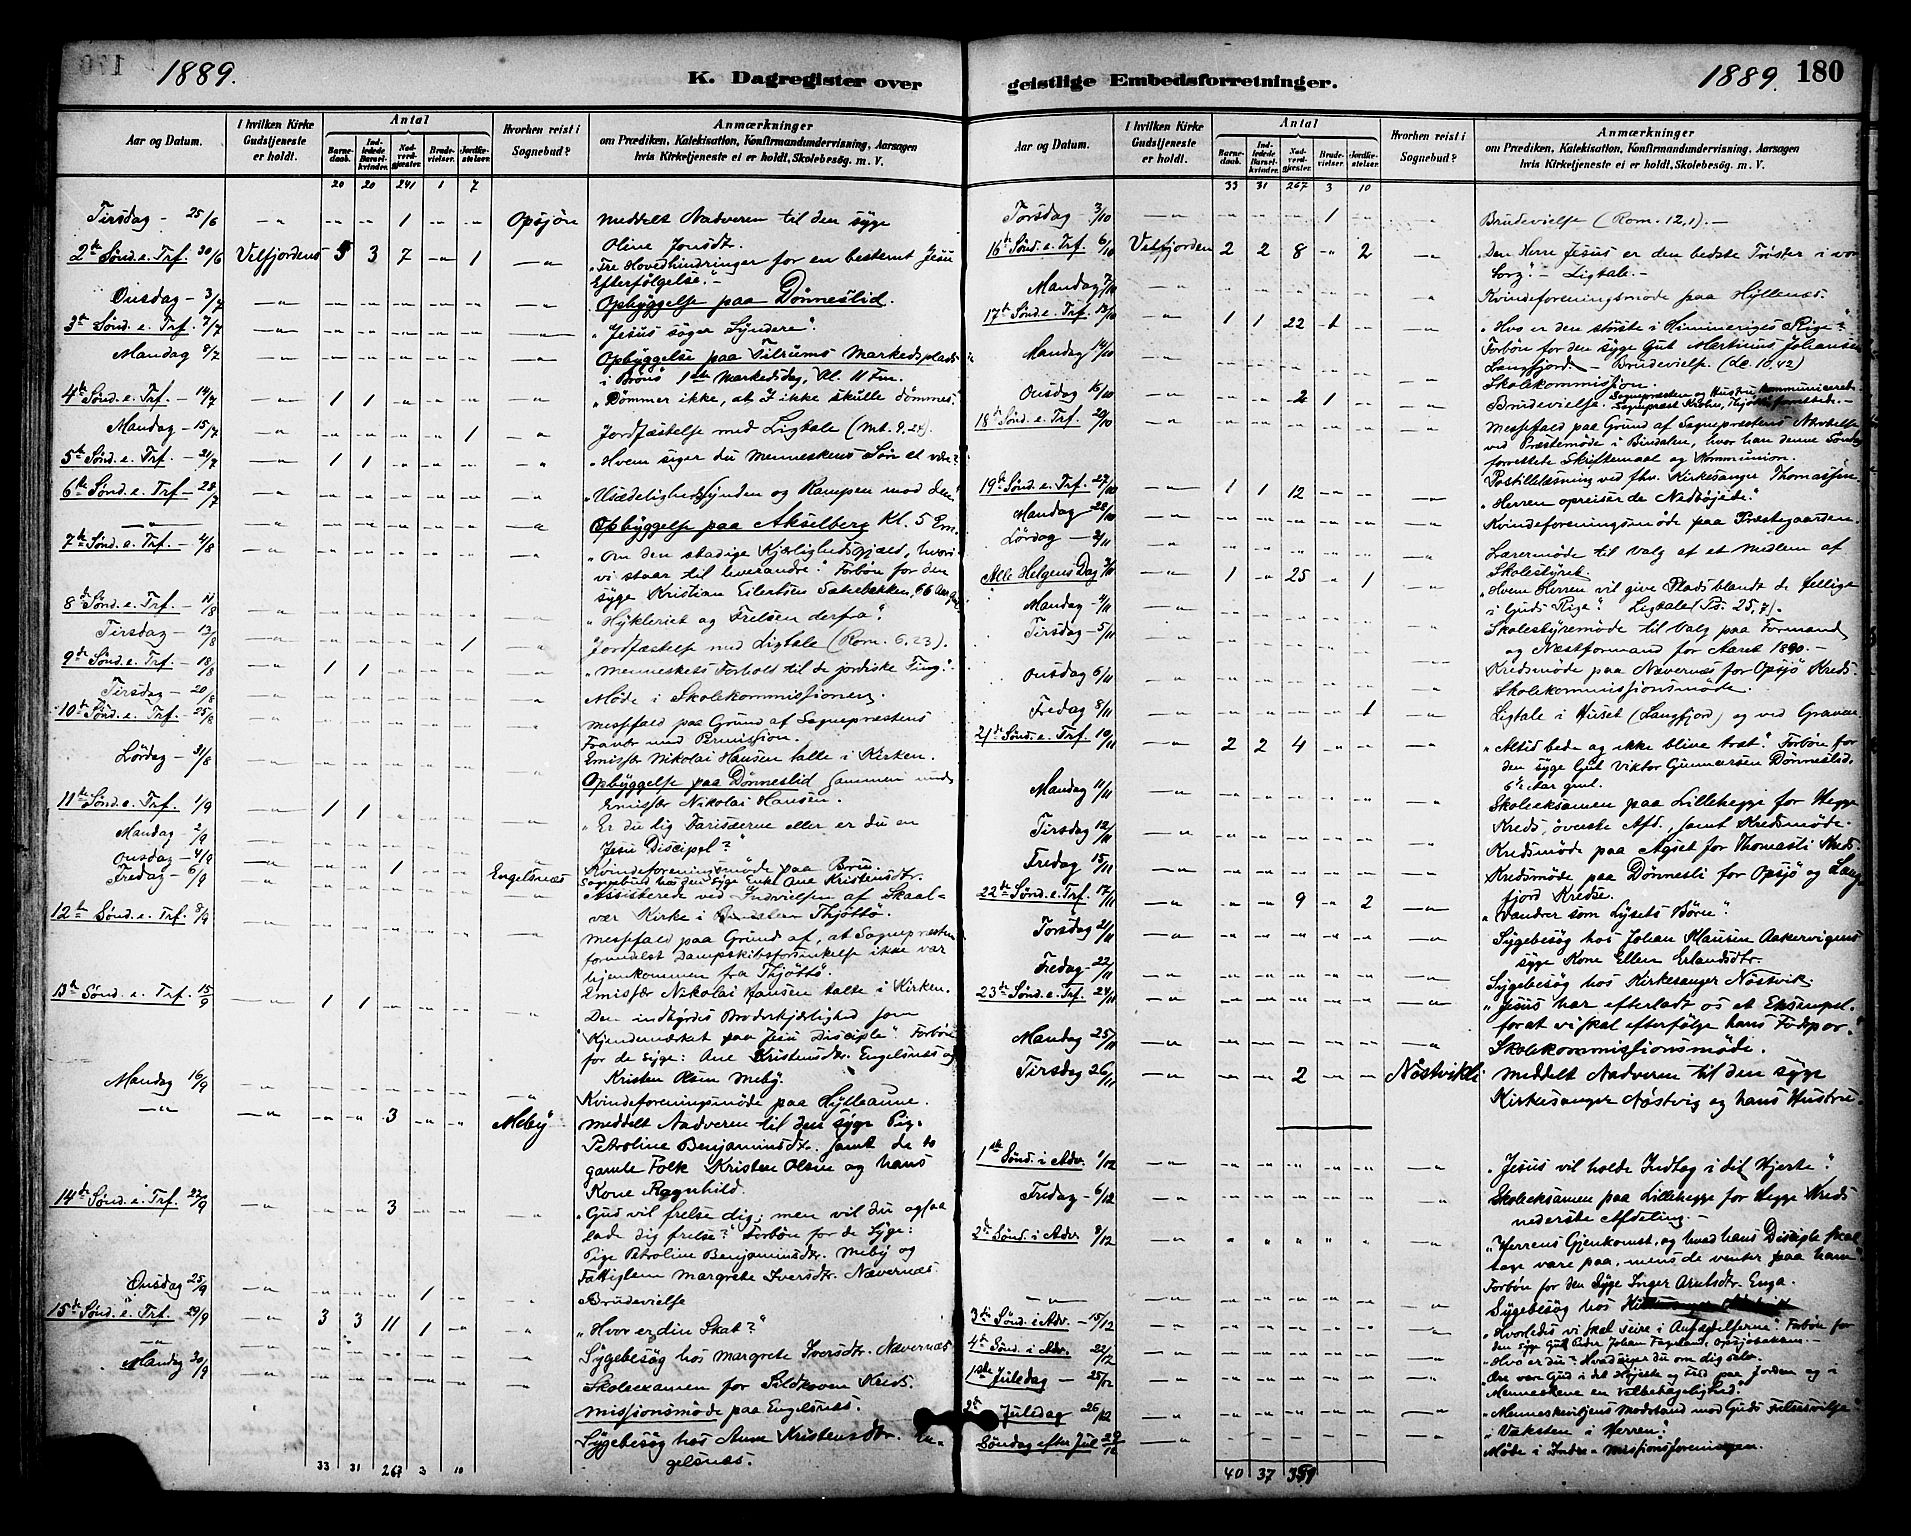 1889.
K. Dagregister over
Aar og Datum.
I hvilken Kirke Gudstjeneste er holdt.
Antal
Barne-daab.
Ind-ledede Barsel-kvinder.
Nad-verd-gjæster.
Brude-vielser.
Jordfæ-stelser.
Hvorhen reist i Sognebud?
Anmærkninger
om Prædiken, Katekisation, Konfirmandundervisning, Aarsagen
hvis Kirketjeneste ei er holdt, Skolebesög. m. V.
20 20 241 1 7
Tirsdag - 25/6 -"- " " 1 " " Opsjön Meddelt Nadveren til den syge
Oline Jonsdtr.
2den Sönd. e. Trf. 30/6 Velfjordens 5 3 7 -"- 1 -"- "Tre Hovedhindringer for en bestemt Jesu
Efterfölgelse".-
Onsdag - 3/7 -"- Opbyggelse paa Dönneslid.
3die Sönd. e. Trf. 7/7 -"- "Jesus søger Syndere".
Mandag 8/7 -"- Opbyggelse paa Tilrums Markedsplads
i Brönö 1ste Markedsdag, Kl. 11 Fm.
4de Sönd. e. Trf. 14/7 -"- 1 1 "Dömmer ikke, at I ikke skulle dömmes."
Mandag - 15/7 -"- 1 Jordfæstelse med Ligtale (Mt. 9,24).
5te Sönd. e. Trf. - 21/7 -"- 1 1 "Hvem siger du Menneskens Sön at være?"
6te Sönd. e. Trf. - 28/7 -"- og Kampen mod den"
-"- Opbyggelse paa Akselberg Kl. 5 Em.
7de Sönd. e. Trf. - 4/8 -"- "Om den stadige Kjærlighedsgjæld, hvori
vi staar til hverandre." Forbön for den
syge Kristian Eilertsen Sætebakken, 66 Aar gml.
8de Sönd. e. Trf. - 11/8 -"- "Hykleriet og Frelsen derfra".
Tirsdag - 13/8 -"- 1 Jordfæstelse med Ligtale (Rom. 6,23).
9de Sönd. e. Trf. - 18/8 -"- 1 1 "Menneskets Forhold til de jordiske Ting".
Tirsdag - 20/8 -"- Möde i Skolekommissionen.
10de Sönd. e. Trf. - 25/8 -"- Messefald paa Grund af Sognepræstens
Fravær med Permission.
Emissær Nikolai Hansen talte i Kirken.
Lördag - 31/8 Opbyggelse paa Dönneslid sammen med
Emissær Nikolai Hansen.
11te Sönd. e. Trf. 1/9 -"- 1 1 "Er du lig Farisæerne eller er du en
Jesu Discipel?"
Mandag 2/9 -"- Kvindeforeningsmöde paa Brus.
Onsdag - 4/9 -"- 1 Engelsnæs Sognebud hos den syge Enke Ane Kristensdtr.
Fredag - 6/9 -"- Assisterede ved Indvielsen af Skaal-
vær Kirke i Thjöttö.
12te Sönd. e. Trf. 8/9 -"- Messefald paa Grund af, at Sognepræsten
formedelst Dampskibsforsinkelse ikke var
hjemkommen fra Thjöttö.
Emissær Nikolai Hansen talte i Kirken.
13de Sönd. e. Trf. 15/9 -"- 1 1 Den indbyrdes Broderkjærlighed som
Kjendemærket paa Jesu Disciple". Forbön
for de syge: Ane Kristensdtr. Engelsnæs og
Kristen Olsen Meby.
Mandag 16/9 -"- Kvindeforeningsmöde paa Hylleaune.
-"- -"- 3 Meby Meddelt Nadveren til den syge Pige
Petroline Benjaminsdtr. samt de to
gamle Folk Kristen Olsen og hans
Kone Ragnhild.
14de Sönd. e. Trf. 22/9 -"- 3 "Gud vil frelse dig; men vil du ogsaa
lade dig frelse?" Forbön for de Syge:
Pige Petroline Benjaminsdtr. Meby og
Fattiglem Margrete Iversdtr. Nævernæs.
Onsdag 25/9 -"- 1 Brudevielse
15de Sönd. e. Trf. 29/9 -"- 3 3 11 1 "Hvor er din Skat?"
-"- Sygebesög hos Margrete Iversdtr. Nævernæs.
Mandag 30/9 -"- Skoleexamen for Kreds.
Missionsmöde paa Engelsnæs.
Sygebesög hos Anne Kristensdtr. En-
gelsnæs.
33 31 267 3 10
geistlige Embedsforretninger.
1889. 180
Aar og Datum.
I hvilken Kirke Gudstjeneste er holdt.
Antal
Barne-daab.
Ind-ledede Barsel-kvinder.
Nad-verd-gjæster.
Brude-vielser.
Jordfæ-stelser.
Hvorhen reist i Sognebud?
Anmærkninger
om Prædiken, Katekisation, Konfirmandundervisning, Aarsagen
hvis Kirketjeneste ei er holdt, Skolebesög. m. V.
33 31 267 3 10
Torsdag 3/10 -"- 1 Brudevielse (Rom. 12,1).-
16de Sönd. e. Trf. 6/10 Velfjorden 2 2 8 " 2 "Den Herre Jesus er den bedste Tröster i vor
Sorg". - Ligtale.-
Mandag 7/10 -"- Kvindeforeningsmöde paa Hyllenæs.
17de Sönd. e. Trf. 13/10 -"- 1 1 22 1 "Hvo er den störste i Himmeriges Rige?"
Forbön for den syge Gut Martinus Johansen
Langfjord - Brudevielse (Lc. 10,42)
Mandag 14/10 -"- Skolekommission.
Onsdag 16/10 -"- 2 1 Brudevielse. Sognepræsten og Hustru kommuniceret.
Sognepræst Krohn, Thjöttö forrettede.-
18de Sönd. e. Trf. 20/10 -"- Messefald paa Grund af Sognepræstens Nærværelse
ved Præstemöde i Bindalen, hvor han denne Söndag
forrettede Skriftemaal og Kommunion.
Postillelæsning ved fhv. Kirkesanger Thomassen.
19de Sönd. e. Trf. 27/10 -"- 1 1 12 "Herren opreiser de Nedböiede."
Mandag 28/10 -"- Kvindeforeningsmöde paa Præstegaarden.
Lördag - 2/11 -"- Lærermöde til Valg af et Medlem af
Skolestyret.
Alle Helgens Dag 3/11 -"- 1 25 1 "Hvem Herren vil give Plads blandt de hellige
i Guds Rige?" Ligtale (Ps. 25,7).
Mandag - 4/11 -"- Skolestyremöde til Valg paa Formand
og Næstformand for Aaret 1890.-
Tirsdag - 5/11 -"- Kredsmöde paa Nævernæs for Opsjö Kreds.
Onsdag 6/11 -"- Skolekommissionsmöde.
Fredag 8/11 -"- 1 Ligtale i Huset (Langfjord) og ved Graven.
21de Sönd. e. Trf. 10/11 -"- 2 2 4 "Altid bede og ikke blive træt". Forbön for
den syge Gut Viktor Gunnarsen Dönneslid,
6te Aar gml.
Mandag 11/11 -"- Skoleeksamen paa Lillehegge for Hegge
Kreds, överste Afd. samt Kredsmöde.
Tirsdag 12/11 -"- Kredsmöde paa for Thomasli Kreds.
Fredag 15/11 -"- Kredsmöde paa Dönnesli for Opsjö og Lang-
fjord Kredse.
22de Sönd. e. Trf. 17/11 -"- 9 2 "Vandrer som Lysets Börn".
Torsdag 21/11 -"- Sygebesög hos Johan Hansen Aakervigens
syge Kone Ellen Erlandsdtr.
Fredag - 22/11 -"- Sygebesög hos Kirkesanger Nöstvik
23de Sönd. e. Trf. 24/11 -"- "Jesus har efterladt os et Eksempel,
for at vi skal efterfölge hans Fodspor."
Mandag 25/11 -"- Skolekommissionsmöde.
Tirsdag 26/11 -"- 2 Nöstvikli Meddelt Nadveren til den syge
Kirkesanger Nöstvig og hans Hustru.
1ste Sönd. i Adv. 1/12 -"- "Jesus vil holde Indtog i dit Hjerte".
Fredag - 6/12 -"- Skoleeksamen paa Lillehegge for Hegge Kreds
nederste Afdeling.-
2den Sönd. i Adv. 8/12 -"- "Herrens Gjenkomst, og hvad hans Disciple skal
tage vare paa, mens de venter paa ham"
Forbön for den Syge Inger Arntsdtr. Enga.
-"- Sygebesög hos
3die Sönd. i Adv. - 15/12 -"- "Hvorledes vi skal seire i Anfægtelserne" Forbön for
den syge Gut Peder Johan Fagerland, Opsjöbakken.-
4de Sönd. i Adv. 22/12 -"- "Hvo er du? Hvad siger du om dig selv."
1ste Juledag - 25/12 -"- "Ære vær Gud i det Höieste og Fred paa Jorden og i
Menneskene en Velbehagelighed."
2den Juledag 26/12 -"- "Menneskeviljens Modstand mod Guds Frelsesvilje"
Söndag efter Jul 29/12 -"- "Væksten i Herren."
Möde i Indre-Missionsforeningen.
40 37 359